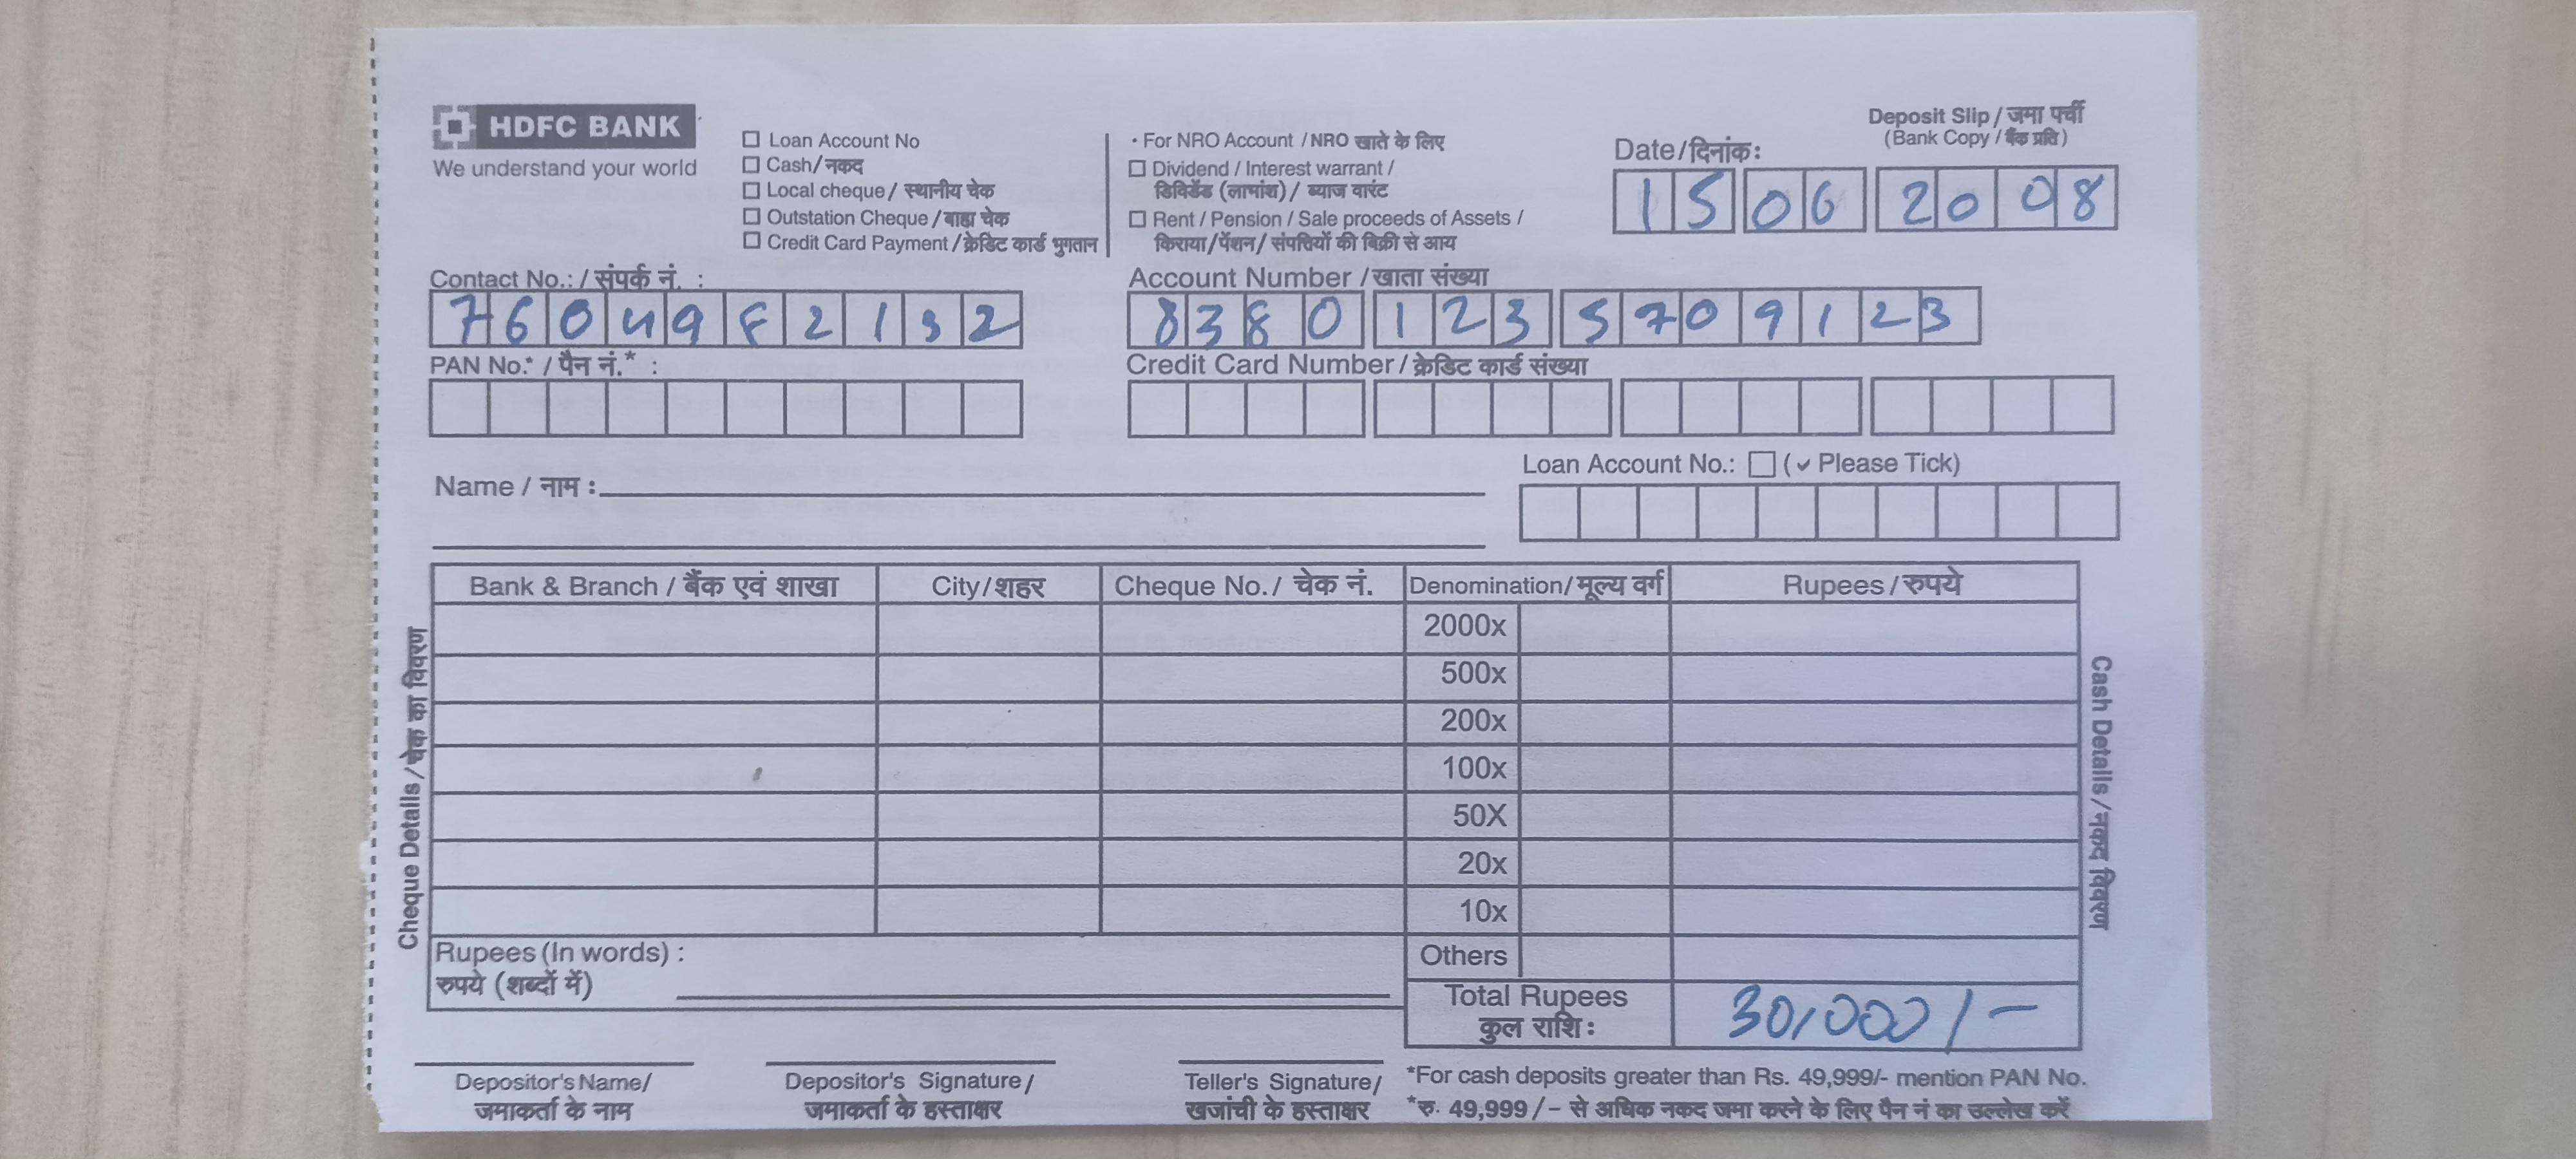 HDFC BANK
We understand your world
Loan Account No
Cash/नकद
Local cheque / स्थानीय चेक
Outstation Cheque / बाह्य चेक
Credit Card Payment / क्रेडिट कार्ड भुगतान
• For NRO Account / NRO खाते के लिए
Dividend / Interest warrant /
डिविडेंड (लाभांश) / ब्याज वारंट
Rent / Pension / Sale proceeds of Assets /
किराया/पेंशन/ संपत्तियों की बिक्री से आय
Deposit Slip / जमा पर्ची
(Bank Copy / बैंक प्रति)
Date/दिनांक:
15 06 2008
Contact No.: / संपर्क नं. :
76049 2132
Account Number / खाता संख्या
8380 123 5709123
PAN No.* / पैन नं.* :
Credit Card Number / क्रेडिट कार्ड संख्या
Loan Account No.: (✓ Please Tick)
Name / नाम :
Cheque Details / चेक का विवरण
Bank & Branch / बैंक एवं शाखा City/शहर Cheque No./ चेक नं. Denomination/मूल्य वर्ग Rupees/रुपये
2000x
500x
200x
100x
50X
20x
10x
Others
Cash Details/नकद विवरण
Rupees (In words) :
रुपये (शब्दों में)
Total Rupees
कुल राशि :
30,000/-
Depositor's Name/
जमाकर्ता के नाम
Depositor's Signature/
जमाकर्ता के हस्ताक्षर
Teller's Signature/
खजांची के हस्ताक्षर
*For cash deposits greater than Rs. 49,999/- mention PAN No.
*रु. 49,999/- से अधिक नकद जमा करने के लिए पैन नं का उल्लेख करें